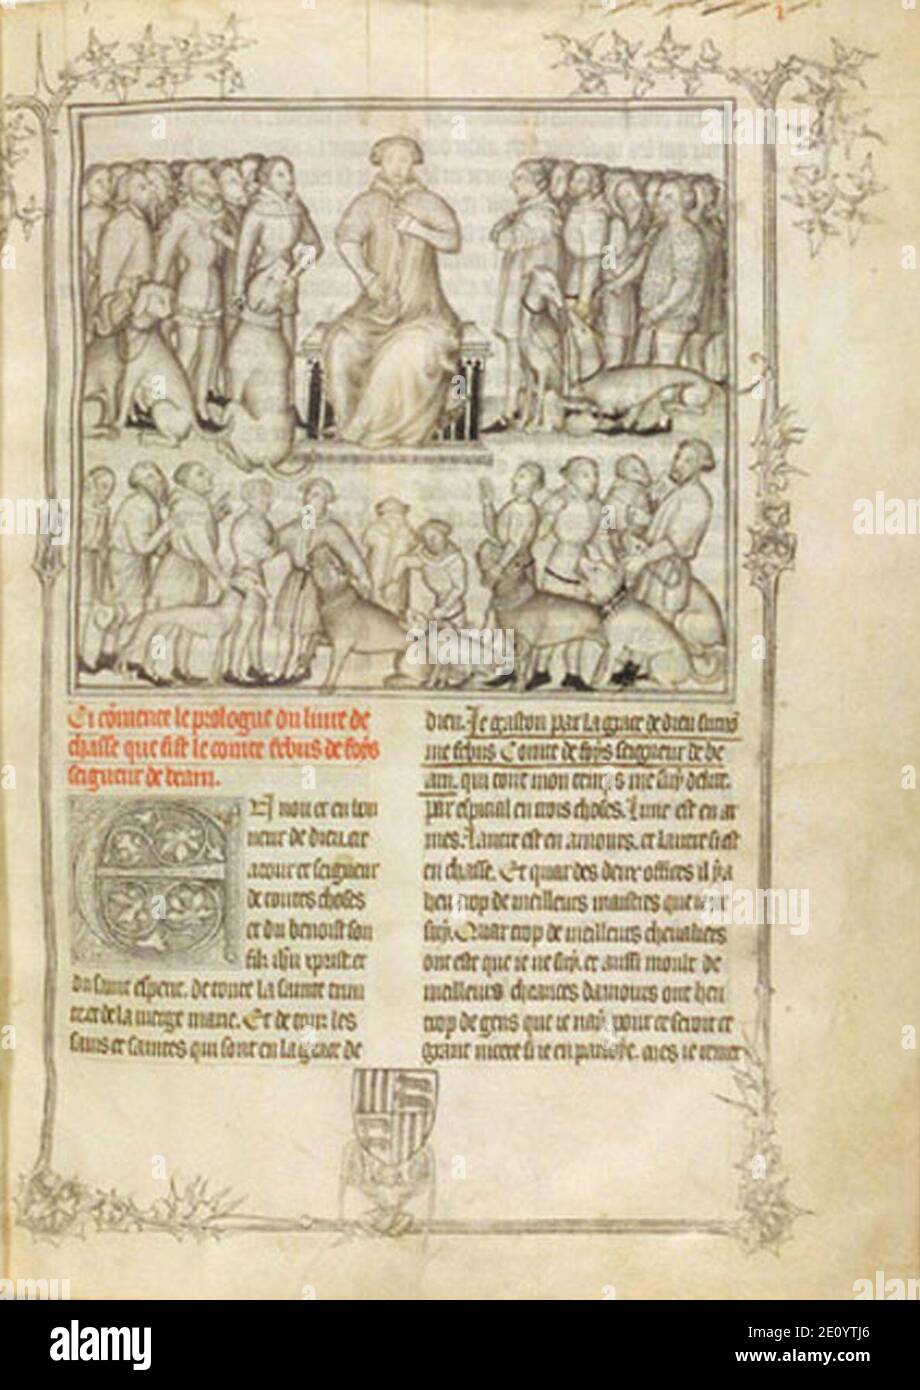 Ci cōmence le prologue du liure de
chasse que fist le comte febus de foys
seigneur de bearn.
El nou et en hon
neur de dieu.
et seigneur
de toutes choses
et du benoist son
filz ihu xp̄rist et
du saint esperit. de toute la sainte trin
et de la vierge marie. Et de touz les
sains et saintes qui sont en la grace de
dieu. Je gaston par la grace de dieu surnō
me febus Comte de foys seigneur de be
arn. qui tout mon temps me suy delite
par especial en trois choses. lune est en ar
mes. lautre est en amours. et lautre si est
en chasse. Et quar des deux offices il ya
heu trop de meilleurs maistres que ie ne
suy. Quar trop de meilleurs chevaliers
ont este que ie ne suy. et aussi moult de
meilleurs cheances damours ont heu
trop de gens que ie nay. pour ce seroit ce
grant nicete si ie en parloye. mes ie remet
alamy
Image ID: 2E0YTJ6
www.alamy.com